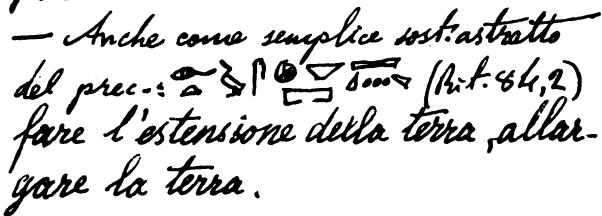 — Anche come semplice sost. astratto
del prec.: (Rit. 84,2)
fare l'estensione della terra, allar-
gare la terra.